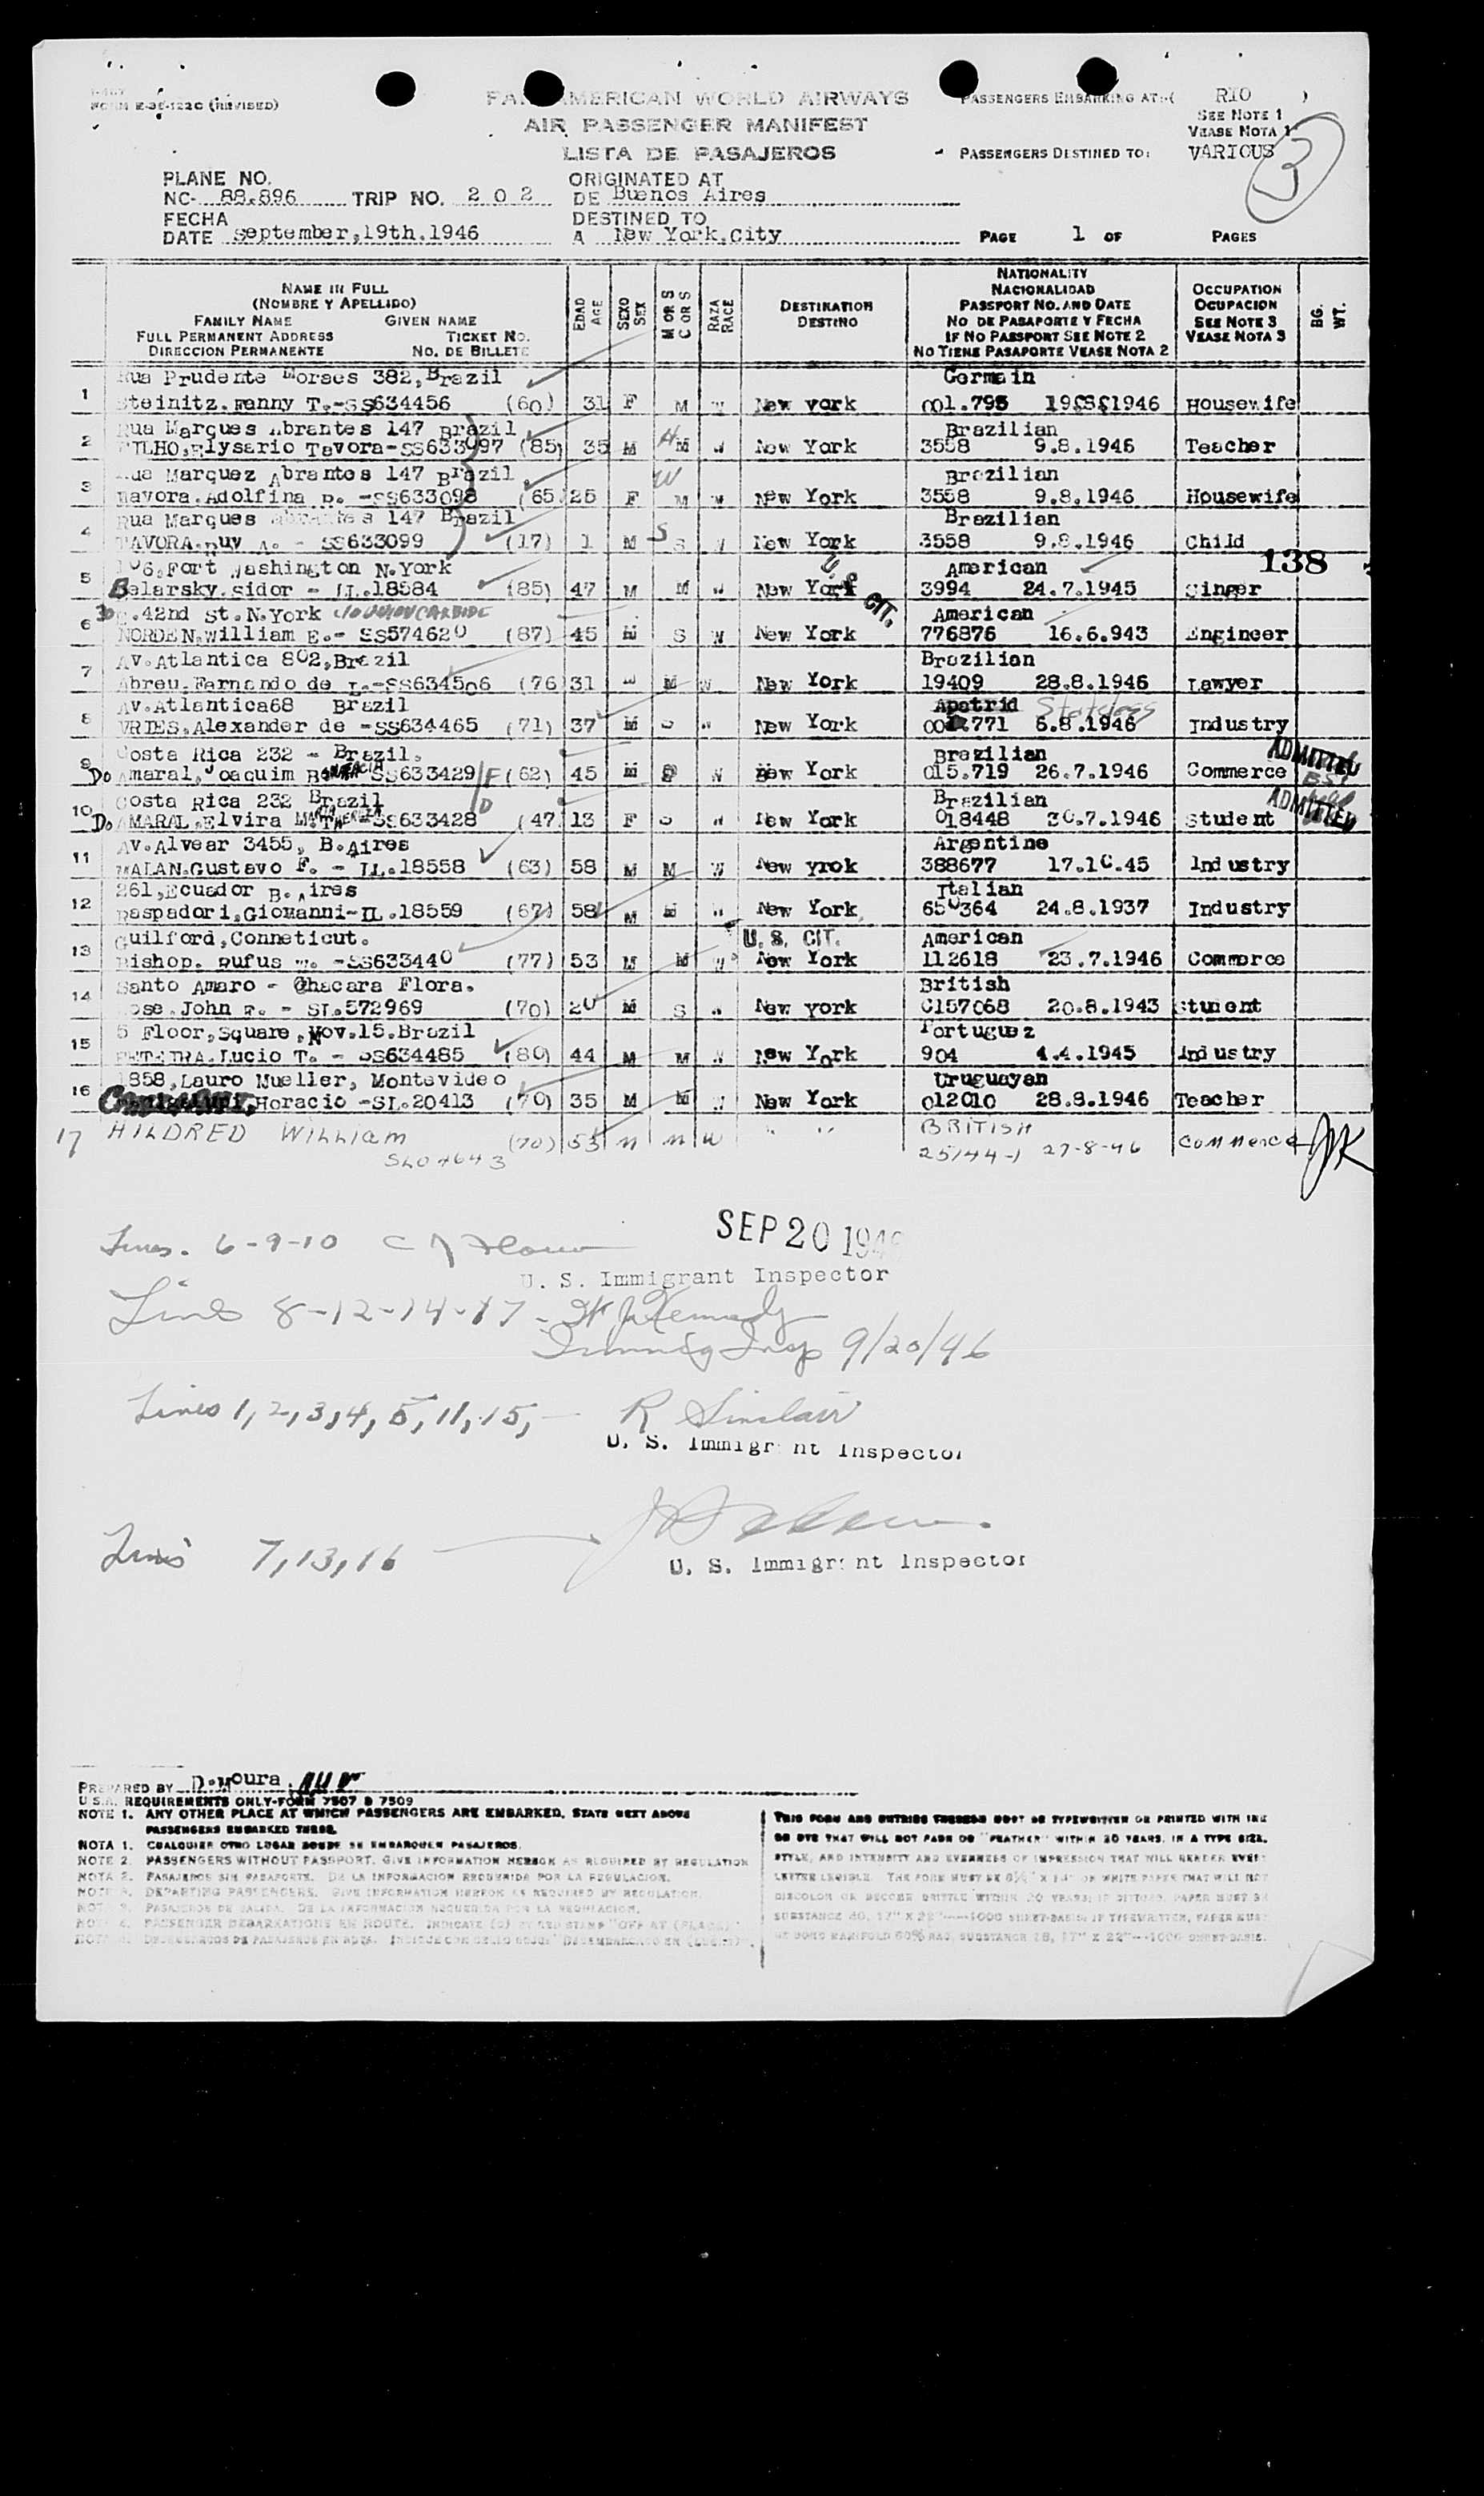 FORM E-36-122C (REVISED)
PAN AMERICAN WORLD AIRWAYS
AIR PASSENGER MANIFEST
LISTA DE PASAJEROS
PASSENGERS EMBARKING AT:-( RIO )
SEE NOTE 1
VEASE NOTA 1
PASSENGERS DESTINED TO: VARIOUS
3
PLANE NO.
NC- 88.896 TRIP NO. 2 0 2
ORIGINATED AT
DE Buenos Aires
FECHA
DATE September,19th.1946
DESTINED TO
A New York.City
PAGE 1 OF PAGES
NAME IN FULL
(NOMBRE Y APELLIDO)
FAMILY NAME GIVEN NAME
FULL PERMANENT ADDRESS TICKET NO.
DIRECCION PERMANENTE NO. DE BILLETE
EDAD AGE
SEXO SEX
M OR S C OR S
RAZA RACE
DESTINATION
DESTINO
NATIONALITY
NACIONALIDAD
PASSPORT NO. AND DATE
NO DE PASAPORTE Y FECHA
IF NO PASSPORT SEE NOTE 2
NO TIENE PASAPORTE VEASE NOTA 2
OCCUPATION
OCUPACION
SEE NOTE 3
VEASE NOTA 3
BG. WT.
Rua Prudente Morses 382,Brazil Germain
1 Steinitz.Fanny T.-SS634456 (60) 31 F M W New york 001.795 1946 Housewife
Rua Marques Abrantes 147 Brazil Brazilian
2 FILHO.Elysario Tavora-SS633097 (85) 35 M M W New York 3558 9.8.1946 Teacher
Rua Marquez Abrantes 147 Brazil. Brazilian
3 Tavora.Adolfina -SS633098 (65) 25 F M W New York 3558 9.8.1946 Housewife
Rua Marques Abrantes 147 Brazil Brazilian
4 TAVORA.Ruy A. - SS633099 (17) 1 M S W New York 3558 9.8.1946 Child
138
Fort Washington N.York American
5 Belarsky.Sidor - IL.18584 (85) 47 M M W New York 3994 24.7.1945 Singer
U.S. CIT.
30 E.42nd St.N.York c/o UNION CARBIDE American
6 NORDEN.William E.- SS574620 (87) 45 M S W New York 776876 16.6.943 Engineer
Av.Atlantica 802,Brazil Brazilian
7 Abreu.Fernando de L.-SS634506 (76 31 M W New York 19409 28.8.1946 Lawyer
Av.Atlantica68 Brazil Apatrid Stateless
8 VRIES.Alexander de -SS634465 (71) 37 M S W New York 771 6.8.1946 Industry
Costa Rica 232 - Brazil. Brazilian
9 Do Amaral,Joaquim SS633429 (62) 45 M W New York 015.719 26.7.1946 Commerce ADMITTED
Costa Rica 232 Brazil Brazilian
10 Do AMARAL.Elvira MARIA THEREZA -SS633428 (47 13 F S W New York 018448 30.7.1946 Student ADMITTED
Av.Alvear 3455, B.Aires Argentine
11 MALAN.Gustavo F. - IL.18558 (63) 58 M M W New yrok 388677 17.10.45 Industry
261,Ecuador B.Aires Italian
12 Raspadori,Giovanni-IL.18559 (67) 58 M M W New York 650364 24.8.1937 Industry
Guilford,Conneticut. U. S. CIT. American
13 Bishop. Rufus W. -SS633440 (77) 53 M M W New York 112618 23.7.1946 Commerce
Santo Amaro - Chacara Flora. British
14 Rose.John -SL.572969 (70) 20 M S W New york C157068 20.8.1943 Student
5 Floor,Square,Nov.15.Brazil Portuguez
15 Lucio T. - SS634485 (80) 44 M M W New York 904 4.4.1945 Industry
1858,Lauro Mueller, Montevideo Uruguayan
16 Horacio -SL.20413 (70) 35 M M W New York 012010 28.8.1946 Teacher
17 HILDRED William (70) 53 M M W " " BRITISH Commerce
27-8-46
SEP 20 1946
Lines. 6-9-10
U. S. Immigrant Inspector
Lines 8-12-14-17 - Kennedy
Immig Insp 9/20/46
Lines 1,2,3,4,5,11,15, - R Sinclair
U. S. Immigrant Inspector
Lines 7,13,16
U. S. Immigrant Inspector
PREPARED BY D.Moura.
U.S.A. REQUIREMENTS ONLY-FORM 7507 & 7509
NOTE 1. ANY OTHER PLACE AT WHICH PASSENGERS ARE EMBARKED, STATE NEXT ABOVE
PASSENGERS EMBARKED THERE.
NOTA 1. CUALQUIER OTRO LUGAR DONDE SE EMBARQUEN PASAJEROS.
NOTE 2. PASSENGERS WITHOUT PASSPORT. GIVE INFORMATION HEREON AS REQUIRED BY REGULATION
NOTA 2. PASAJEROS SIN PASAPORTE. DE LA INFORMACION REQUERIDA POR LA REGULACION.
DEPARTING PASSENGERS. GIVE INFORMATION HEREON AS REQUIRED BY REGULATION.
PASAJEROS DE SALIDA. DE LA INFORMACION REQUERIDA POR LA REGULACION.
PASSENGER DEBARKATIONS EN ROUTE. INDICATE
THIS FORM AND ENTRIES THEREON MUST BE TYPEWRITTEN OR PRINTED WITH INK
OR DYE THAT WILL NOT FADE OR "FEATHER" WITHIN 20 YEARS, IN A TYPE SIZE,
STYLE, AND INTENSITY AND EVENNESS OF IMPRESSION THAT WILL RENDER EVERY
LETTER LEGIBLE.